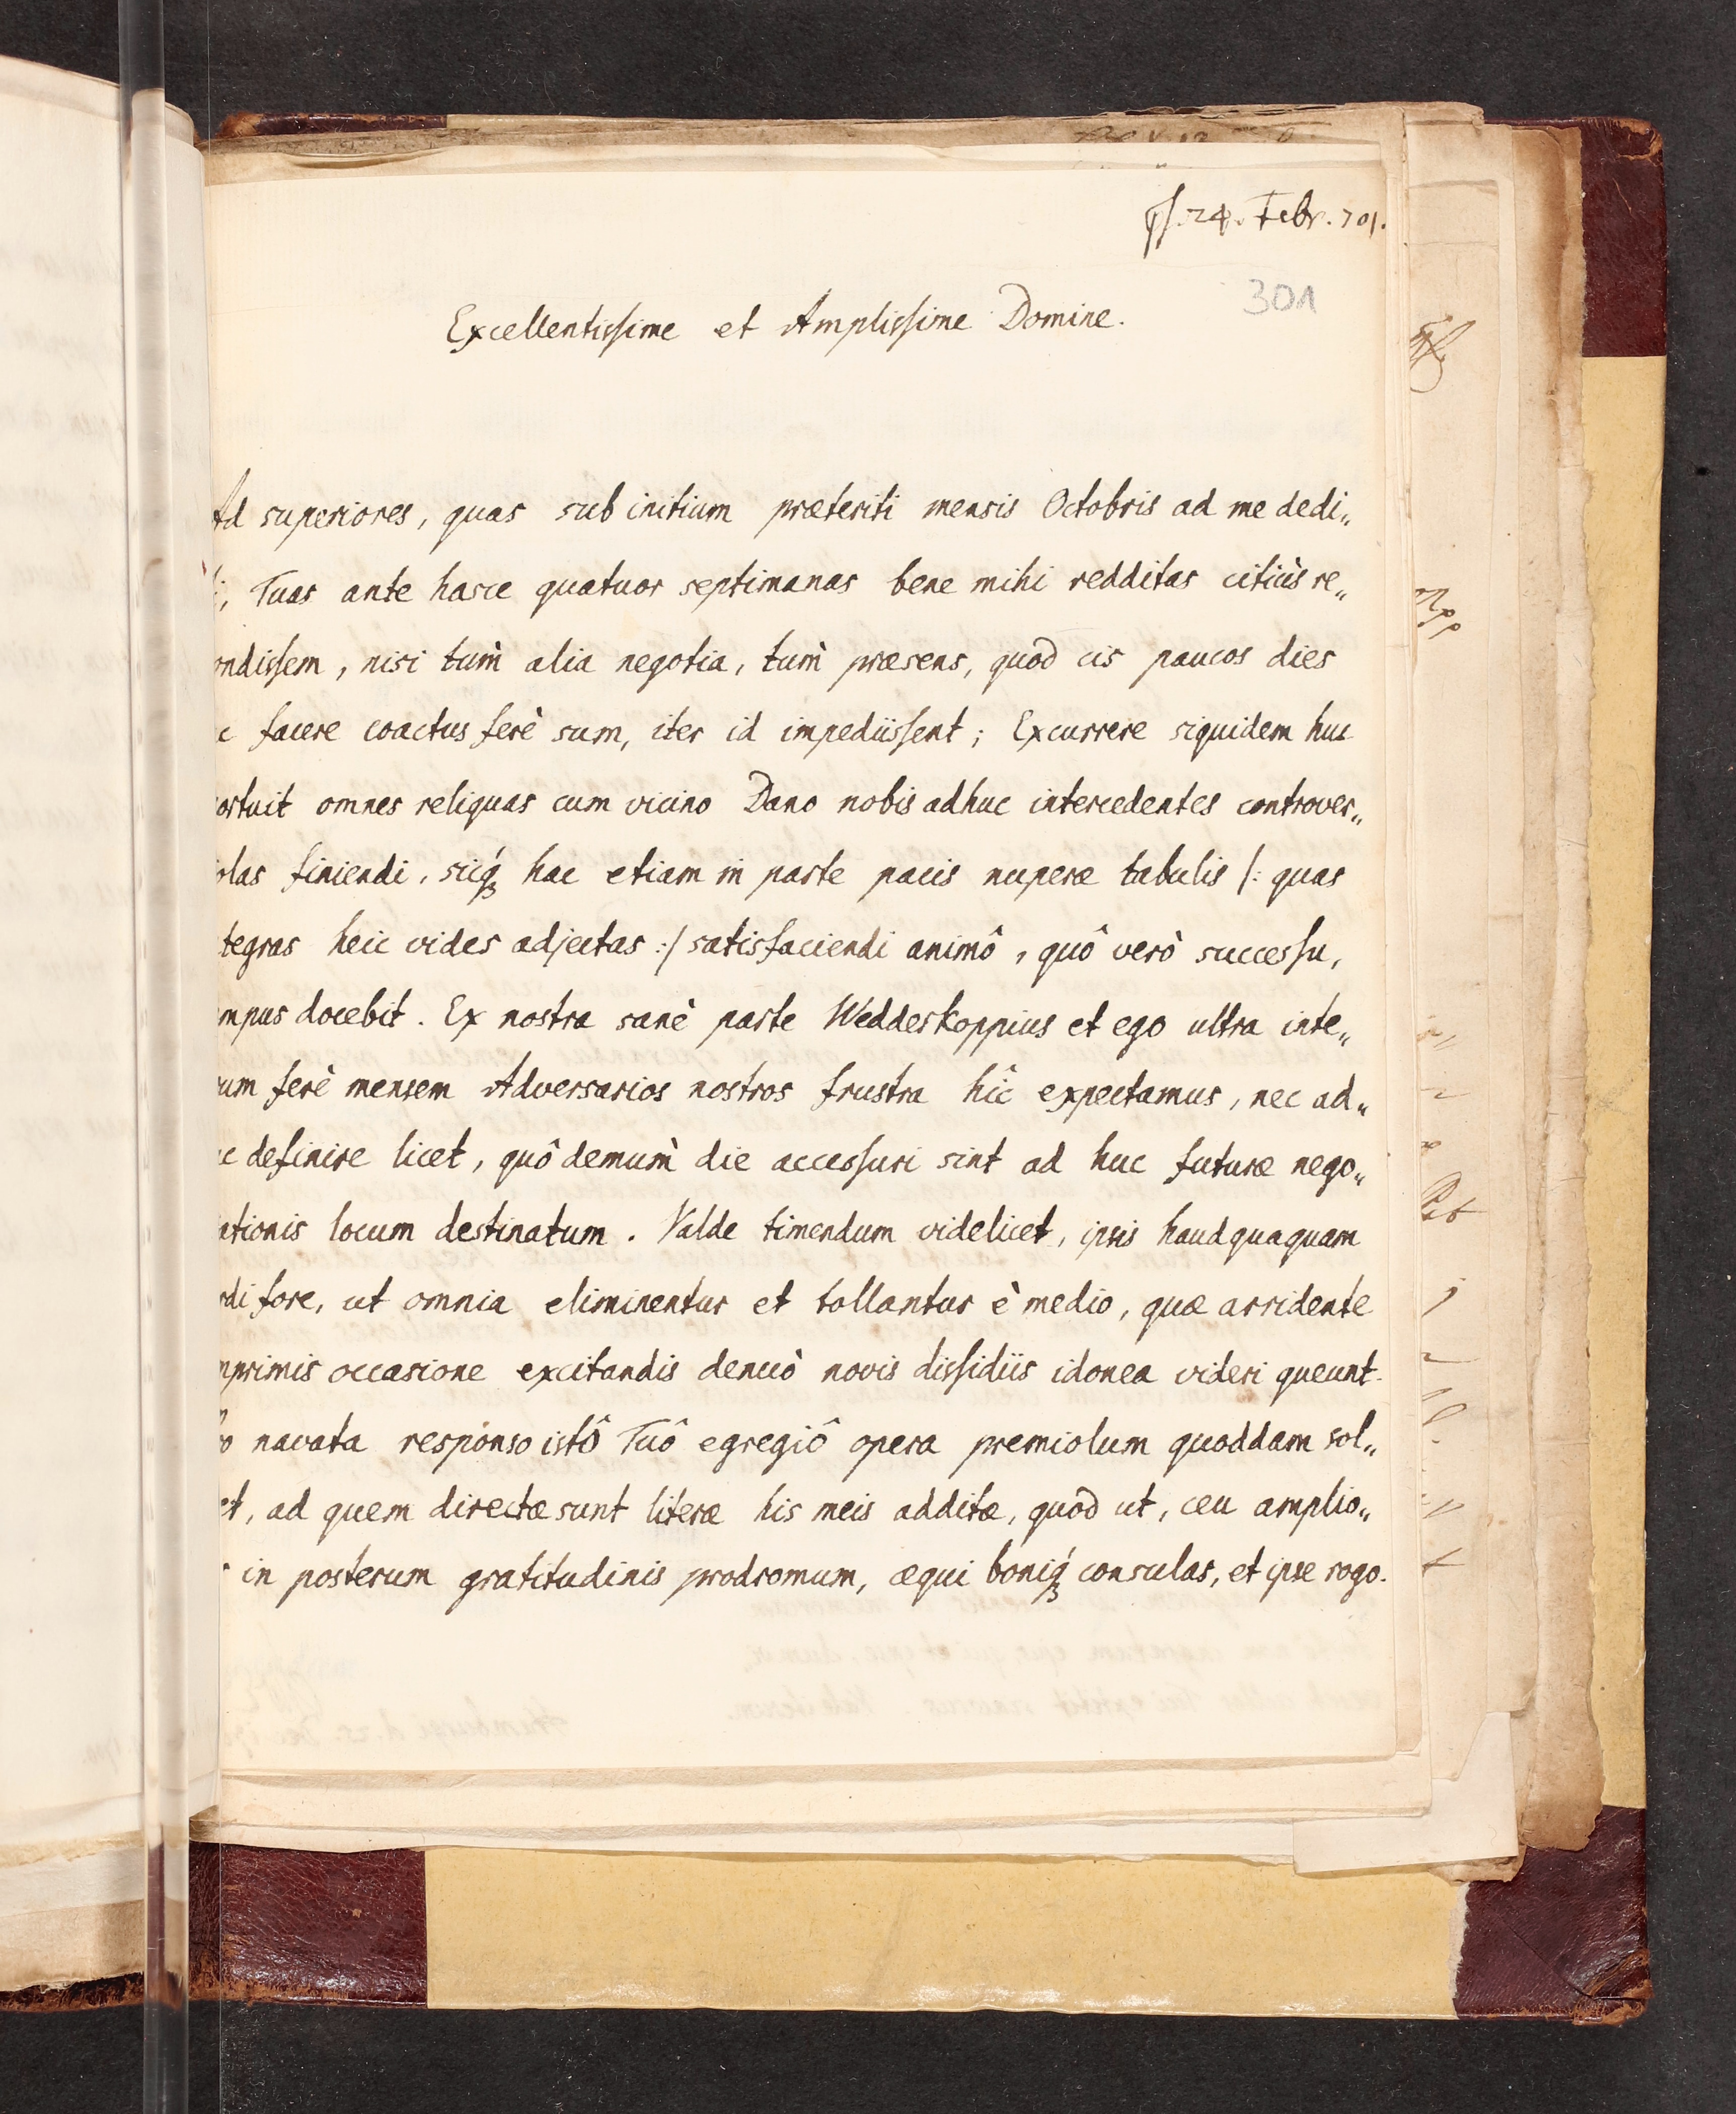 ps. 24. Febr. 701.
301
Excellentissime et Amplissime Domine.
Ad superiores, quas sub initium præteriti mensis Octobris ad me dedi„
Tuas ante hasce quatuor septimanas bene mihi redditas citiùs re„
ondissem, nisi tùm alia negotia, tùm præsens, quòd cis paucos dies
c facere coactus ferè sum, iter id impediissent; Excurrere siquidem huc
ortuit omnes reliquas cum vicino Dano nobis adhuc intercedentes controver„
olas finiendi, sicq́ꝫ hac etiam in parte pacis nuperæ tabulis /: quas
tegras heic vides adjectas :/ satisfaciendi animô, quô verò successu,
mpus docebit. Ex nostra sanè parte Wedderkoppius et ego ultra inte„
rum ferè mensem Adversarios nostros frustra hîc expectamus, nec ad„
uc definire licet, quô demùm die accessuri sint ad huc futuræ nego„
iationis locum destinatum. Valde timendum videlicet, ipsis haudquaquam
rdi fore, ut omnia eliminentur et tollantur è medio, quæ arridente
mprimis occasione excitandis denuò novis dissidiis idonea videri queunt.
o navata responso istô Tuô egregiô opera premiolum quoddam sol„
et, ad quem directæ sunt literæ his meis additæ, quòd ut, ceu amplio„
in posterum gratitudinis prodromum, æqui boniq́ꝫ consulas, et ipse rogo.